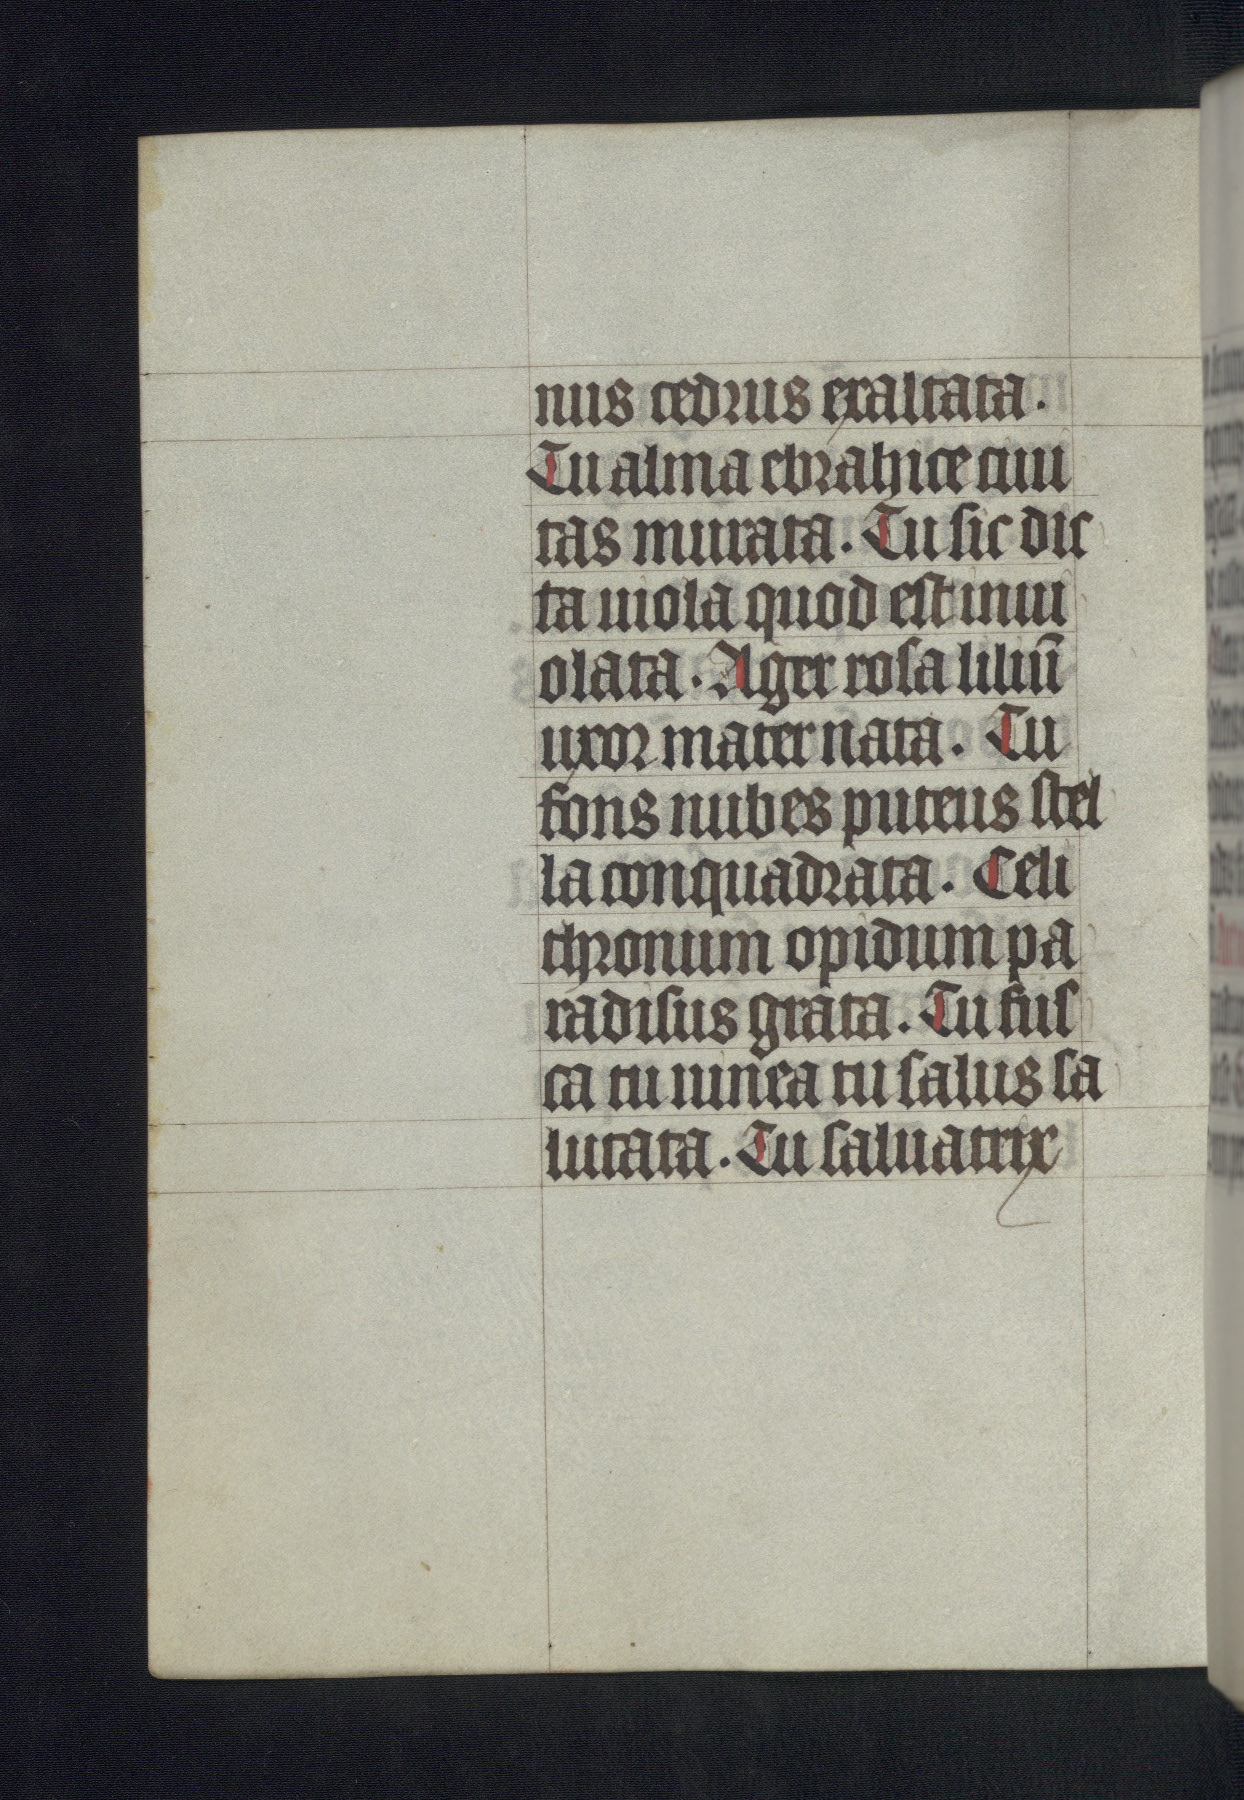 nus cedrus exaltata.
Tu alma ebrahice ciui
tas murata. Tu sic dic
ta uiola quod est inui
olata. Ager rosa liliū
uxor mater nata. Tu
fons nubes puteus stel
la conquadrata. Celi
thronum opidum pa
radisus grata. Tu fus
ca tu niuea tu salus sa
lutata. Tu saluatrix